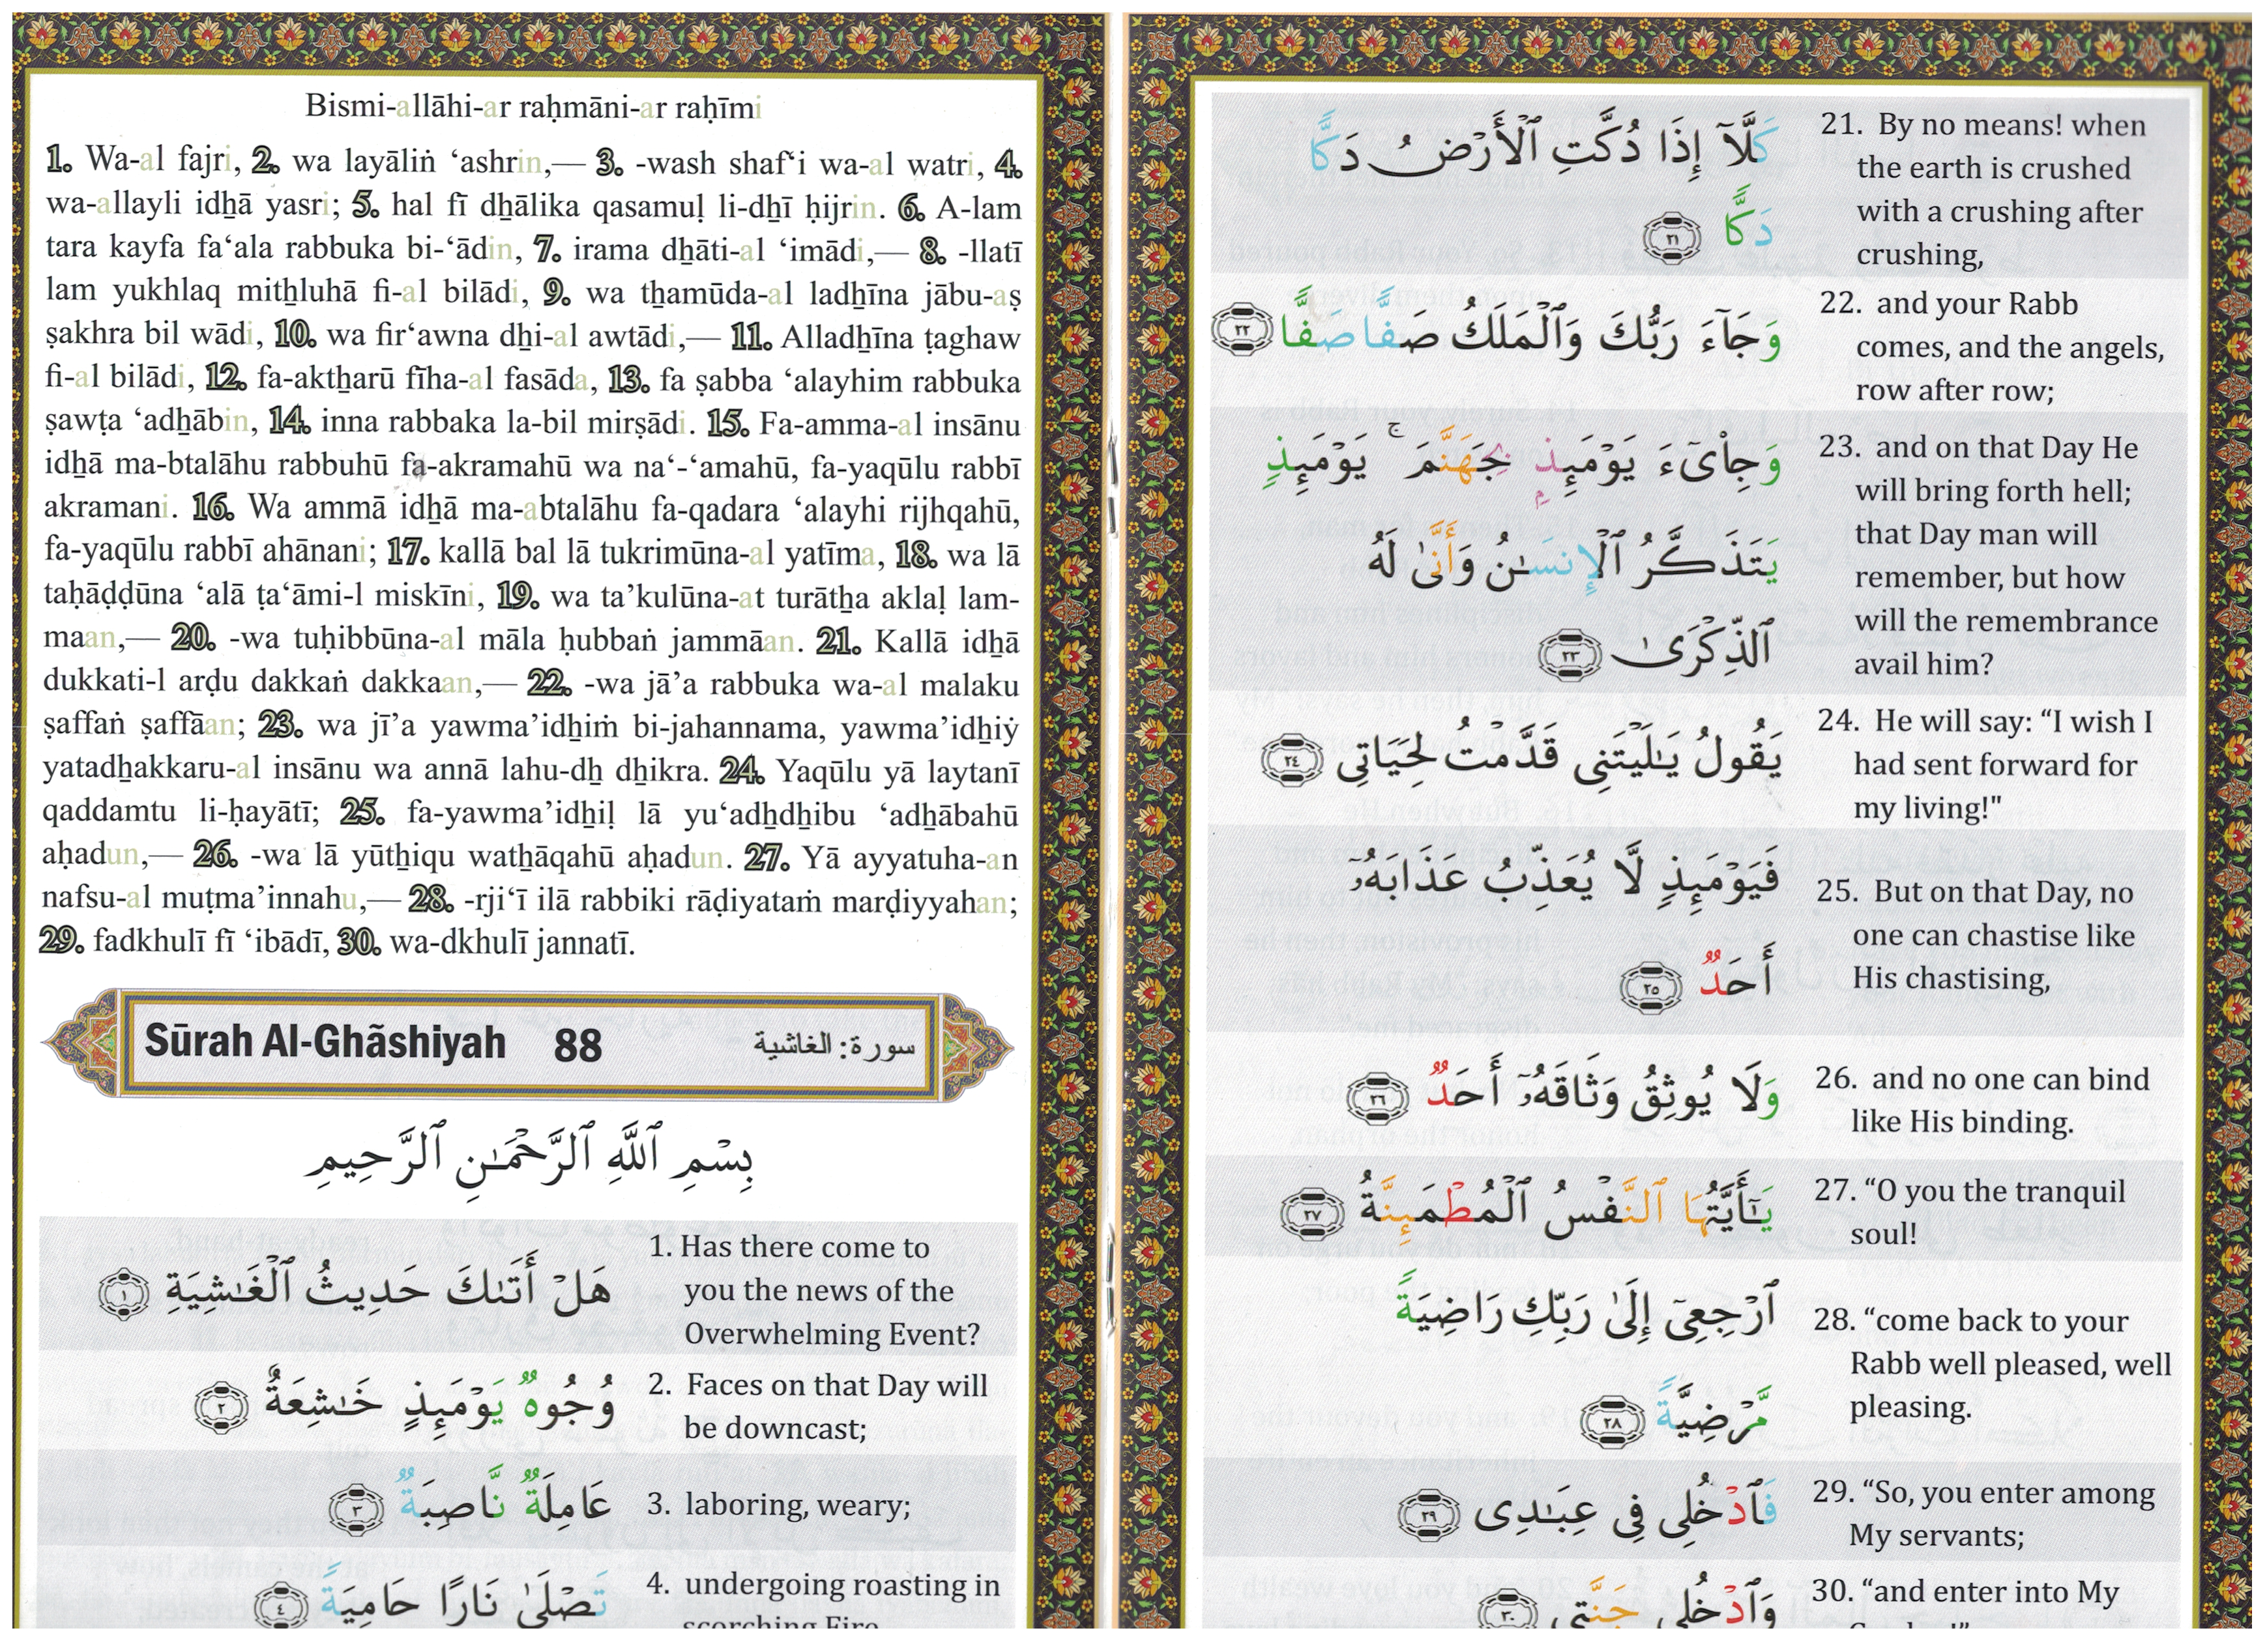 كَلَّآ إِذَا دُكَّتِ ٱلْأَرْضُ دَكًّا
دَكًّا ٢١
21. By no means! when
the earth is crushed
with a crushing after
crushing,
وَجَآءَ رَبُّكَ وَٱلْمَلَكُ صَفًّا صَفًّا ٢٢
22. and your Rabb
comes, and the angels,
row after row;
وَجِا۟ىٓءَ يَوْمَئِذٍۭ بِجَهَنَّمَ ۚ يَوْمَئِذٍ
يَتَذَكَّرُ ٱلْإِنسَـٰنُ وَأَنَّىٰ لَهُ
ٱلذِّكْرَىٰ ٢٣
23. and on that Day He
will bring forth hell;
that Day man will
remember, but how
will the remembrance
avail him?
يَقُولُ يَـٰلَيْتَنِى قَدَّمْتُ لِحَيَاتِى ٢٤
24. He will say: “I wish I
had sent forward for
my living!"
فَيَوْمَئِذٍ لَّا يُعَذِّبُ عَذَابَهُۥٓ
أَحَدٌ ٢٥
25. But on that Day, no
one can chastise like
His chastising,
وَلَا يُوثِقُ وَثَاقَهُۥٓ أَحَدٌ ٢٦
26. and no one can bind
like His binding.
يَـٰٓأَيَّتُهَا ٱلنَّفْسُ ٱلْمُطْمَئِنَّةُ ٢٧
27. “O you the tranquil
soul!
ٱرْجِعِىٓ إِلَىٰ رَبِّكِ رَاضِيَةً
مَّرْضِيَّةً ٢٨
28. “come back to your
Rabb well pleased, well
pleasing.
فَٱدْخُلِى فِى عِبَـٰدِى ٢٩
29. “So, you enter among
My servants;
وَٱدْخُلِى جَنَّتِى ٣٠
30. “and enter into My
Bismi-allāhi-ar raḥmāni-ar raḥīmi
1. Wa-al fajri, 2. wa layāliṅ ‘ashrin,— 3. -wash shaf‘i wa-al watri, 4.
wa-allayli idẖā yasri; 5. hal fī dẖālika qasamuḷ li-dhī ḥijrin. 6. A-lam
tara kayfa fa‘ala rabbuka bi-‘ādin, 7. irama dẖāti-al ‘imādi,— 8. -llatī
lam yukhlaq mitẖluhā fi-al bilādi, 9. wa tẖamūda-al ladẖīna jābu-aṣ
ṣakhra bil wādi, 10. wa fir‘awna dẖi-al awtādi,— 11. Alladẖīna ṭaghaw
fi-al bilādi, 12. fa-aktẖarū fīha-al fasāda, 13. fa ṣabba ‘alayhim rabbuka
ṣawṭa ‘adẖābin, 14. inna rabbaka la-bil mirṣādi. 15. Fa-amma-al insānu
idẖā ma-btalāhu rabbuhū fa-akramahū wa na‘-‘amahū, fa-yaqūlu rabbī
akramani. 16. Wa ammā idẖā ma-abtalāhu fa-qadara ‘alayhi rijhqahū,
fa-yaqūlu rabbī ahānani; 17. kallā bal lā tukrimūna-al yatīma, 18. wa lā
taḥāḍḍūna ‘alā ṭa‘āmi-l miskīni, 19. wa ta’kulūna-at turātẖa aklaḷ lam-
maan,— 20. -wa tuḥibbūna-al māla ḥubbaṅ jammāan. 21. Kallā idẖā
dukkati-l arḍu dakkaṅ dakkaan,— 22. -wa jā’a rabbuka wa-al malaku
ṣaffaṅ ṣaffāan; 23. wa jī’a yawma’idẖiṁ bi-jahannama, yawma’idẖiẏ
yatadẖakkaru-al insānu wa annā lahu-dẖ dẖikra. 24. Yaqūlu yā laytanī
qaddamtu li-ḥayātī; 25. fa-yawma’idẖiḷ lā yu‘adẖdẖibu ‘adẖābahū
aḥadun,— 26. -wa lā yūtẖiqu watẖāqahū aḥadun. 27. Yā ayyatuha-an
nafsu-al muṭma’innahu,— 28. -rji‘ī ilā rabbiki rāḍiyataṁ marḍiyyahan;
29. fadkhulī fī ‘ibādī, 30. wa-dkhulī jannatī.
Sūrah Al-Ghãshiyah 88 سورة: الغاشية
بِسْمِ ٱللَّهِ ٱلرَّحْمَـٰنِ ٱلرَّحِيمِ
هَلْ أَتَىٰكَ حَدِيثُ ٱلْغَـٰشِيَةِ ١
1. Has there come to
you the news of the
Overwhelming Event?
وُجُوهٌ يَوْمَئِذٍ خَـٰشِعَةٌ ٢
2. Faces on that Day will
be downcast;
عَامِلَةٌ نَّاصِبَةٌ ٣
3. laboring, weary;
تَصْلَىٰ نَارًا حَامِيَةً ٤
4. undergoing roasting in